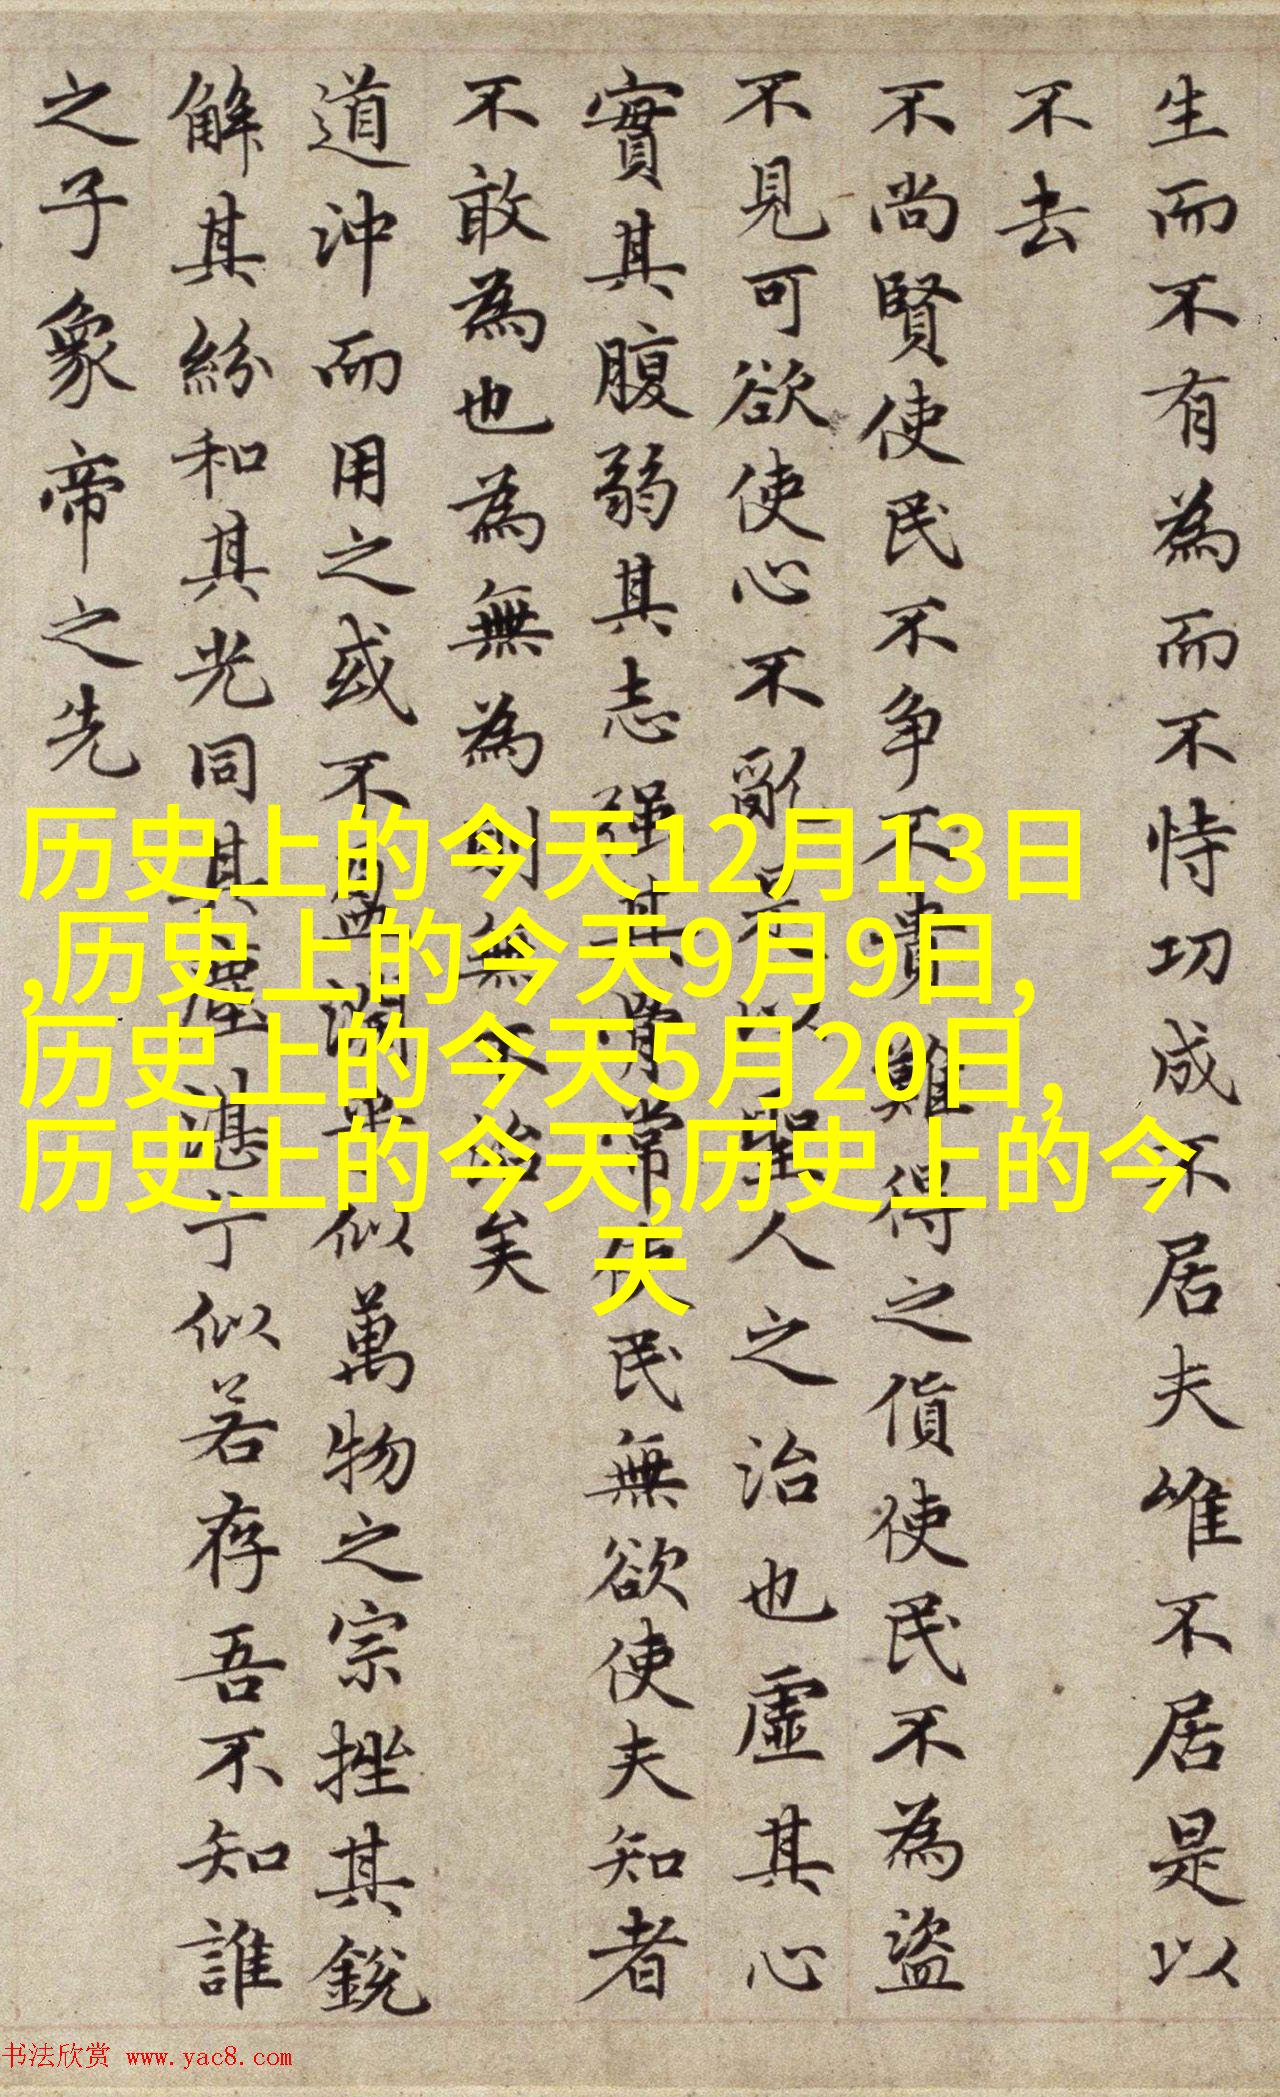 生而不有為而不恃功成不居夫唯不居是以
不去
不尚賢使民不争不貴難得之貨使民不為盜
不見可欲使心不亂是以聖人之治也虛其心
實其腹弱其志强其骨常使民無欲使夫知者
不敢為也為無為則無不治矣
道沖而用之或不盈淵乎似萬物之宗挫其銳
解其紛和其光同其塵湛似若存吾不知誰
之子象帝之先
历史上的今天12月13日
,历史上的今天9月9日,
历史上的今天5月20日,
历史上的今天,历史上的今
天
书法欣赏 www.yac8.com